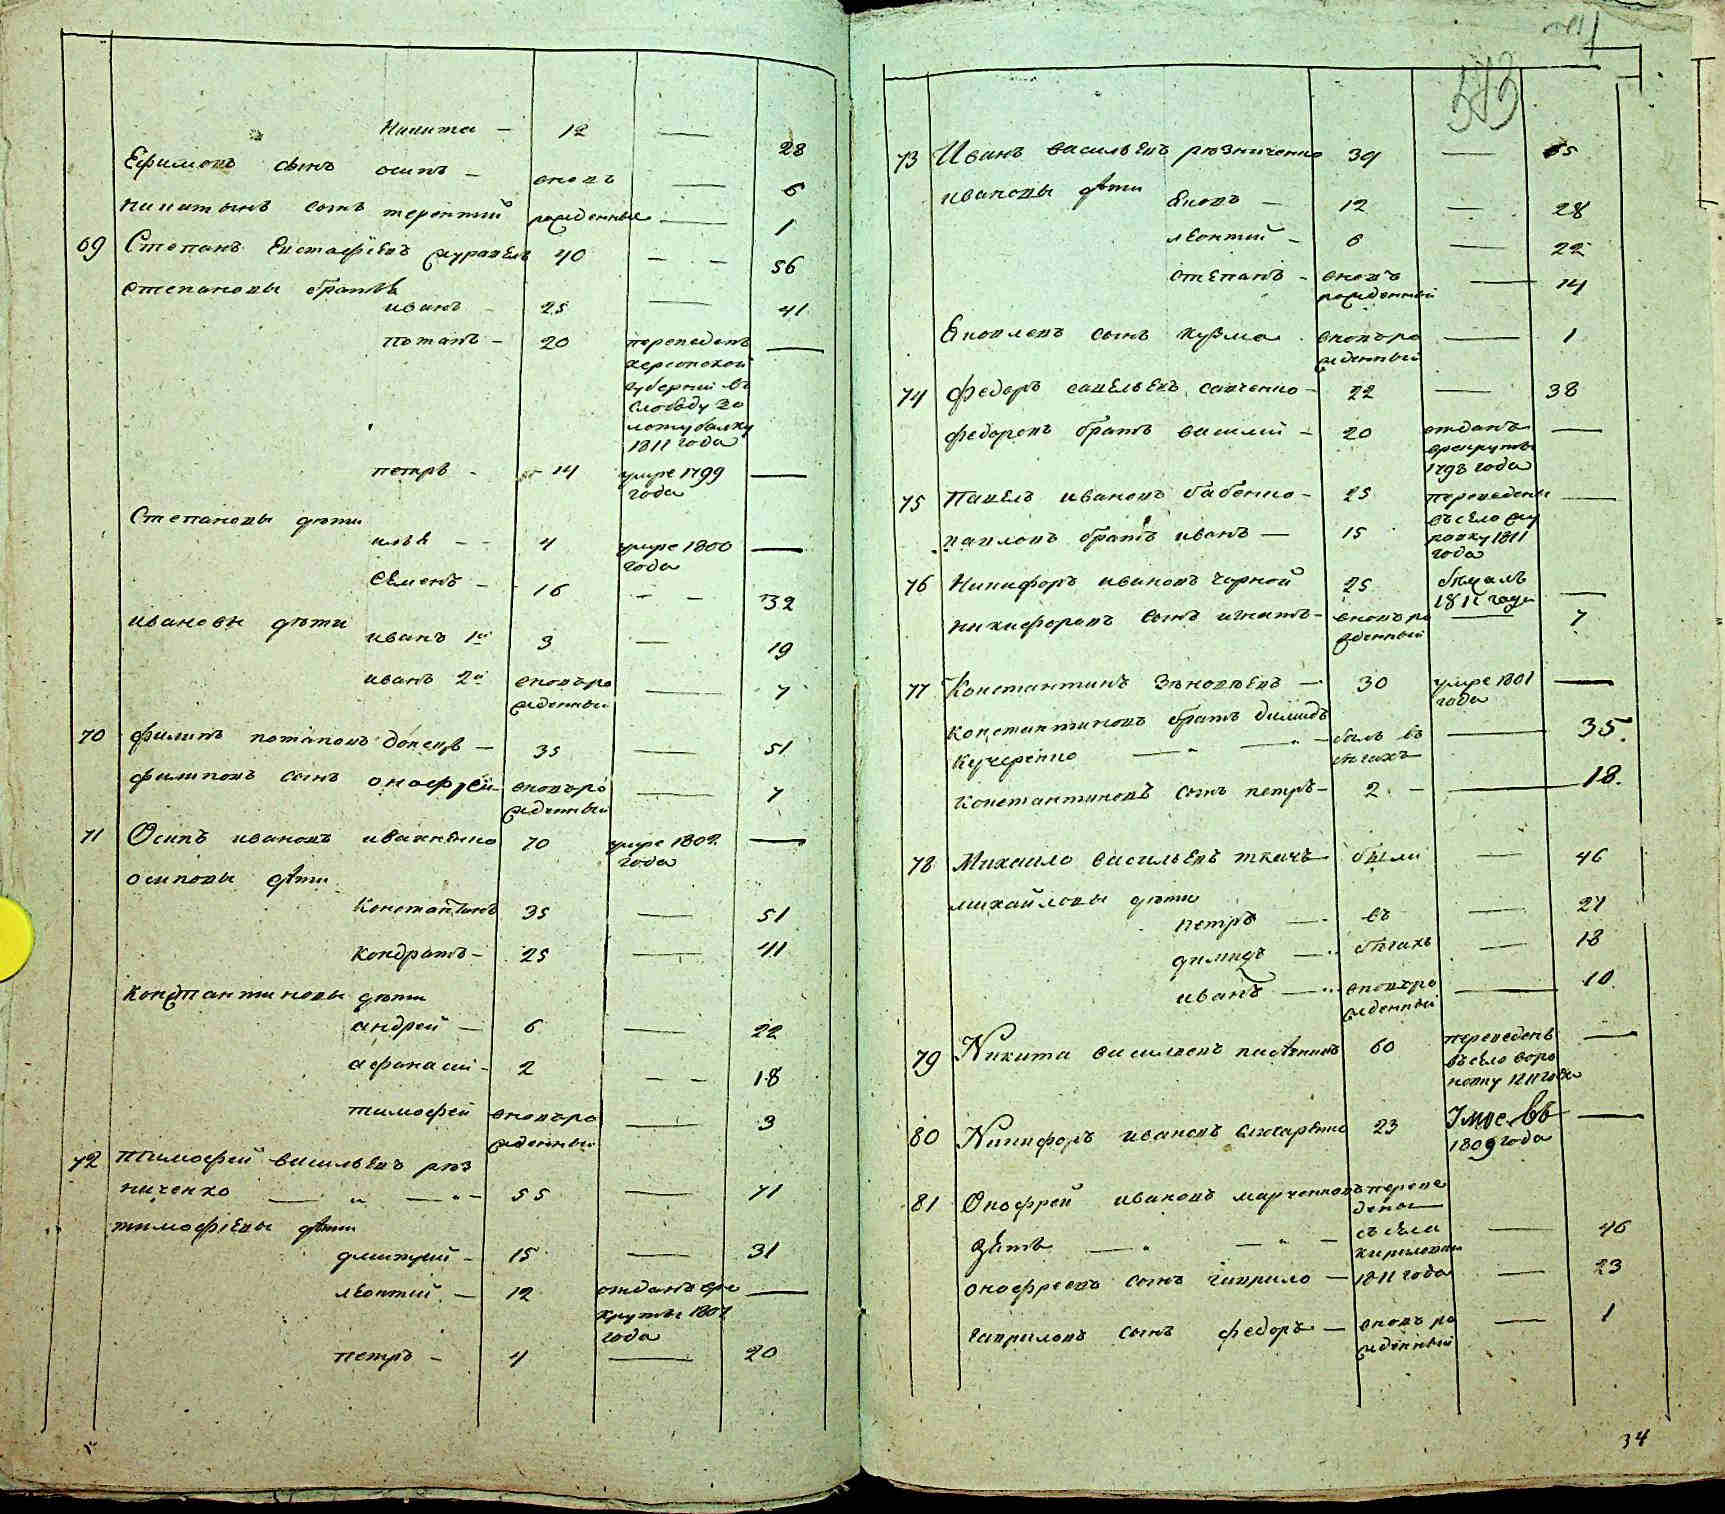 Никита — 12 — 28
Ефимовъ сынъ осипъ — вновь — 6
никитинъ сынъ терентий рожденные — 1
69 Степанъ Евстафіевъ журавель 40 — 56
степановы братья
иванъ — 25 — 41
потапъ — 20 переведенъ —
херсонской
губернии въ
слободу зо
лотубалку
1811 года
петръ — 14 умре 1799 —
года
Степановы дѣти
илья — 4 умре 1800 —
года
Семенъ — 16 — 32
ивановы дѣти
иванъ 1й 3 — 19
иванъ 2й вновьро — 7
жденный
70 филипъ потаповъ донецъ — 35 — 51
филиповъ сынъ онофрей вновьро — 7
жденный
71 Осипъ ивановъ ивахненко 70 умре 1802 —
года
осиповы дѣти
Константинъ 35 — 51
кондратъ — 25 — 41
константиновы дѣти
андрей — 6 — 22
афанасий — 2 — 18
тимофей вновьро — 3
жденный
72 Тимофей васильевъ рѣз
ниченко — „ — „ — 55 — 71
тимофіевы дѣти
дмитрий — 15 — 31
леонтий — 12 отданъ вре —
круты 1802
года
петръ — 4 — 20
573
73 Иванъ васильевъ рѣзниченко 39 — 55
ивановы дѣти
Яковъ — 12 — 28
леонтий — 6 — 22
степанъ — вновь — 14
рожденный
Яковлевъ сынъ кузма вновьро — 1
жденный
74 федоръ савельевъ савченко — 22 — 38
федоровъ братъ василий — 20 отданъ —
врекруты
1798 года
75 Павелъ ивановъ бабенко — 25 переведены —
павловъ братъ иванъ — 15 въ село жу
равку 1811
года
76 Никифоръ ивановъ чорной 25 бѣжалъ
1811 года —
никифоровъ сынъ игнатъ — вновьро — 7
жденный
77 Константинъ Зѣновьевъ — 30 умре 1801 —
года
константиновъ братъ демидъ
кучеренко — „ — „ — былъ въ — 35.
бѣгахъ
константиновъ сынъ петръ — 2 — 18.
78 Михайло васильевъ ткачъ были — 46
михайловы дѣти
петръ — въ — 27
димидъ — бѣгахъ — 18
иванъ — вновьро — 10
жденный
79 Никита васильевъ пасѣчникъ 60 переведенъ —
въ село воро
новку 1811 года
80 Никифоръ ивановъ 23 Умре въ —
1809 года
81 Онофрей ивановъ марченковъ переве
дены
зять — „ — „ — съ села — 46
кириловки
онофреевъ сынъ гаврило — 1811 года — 23
гавриловъ сынъ федоръ — вновь ро — 1
жденный
34